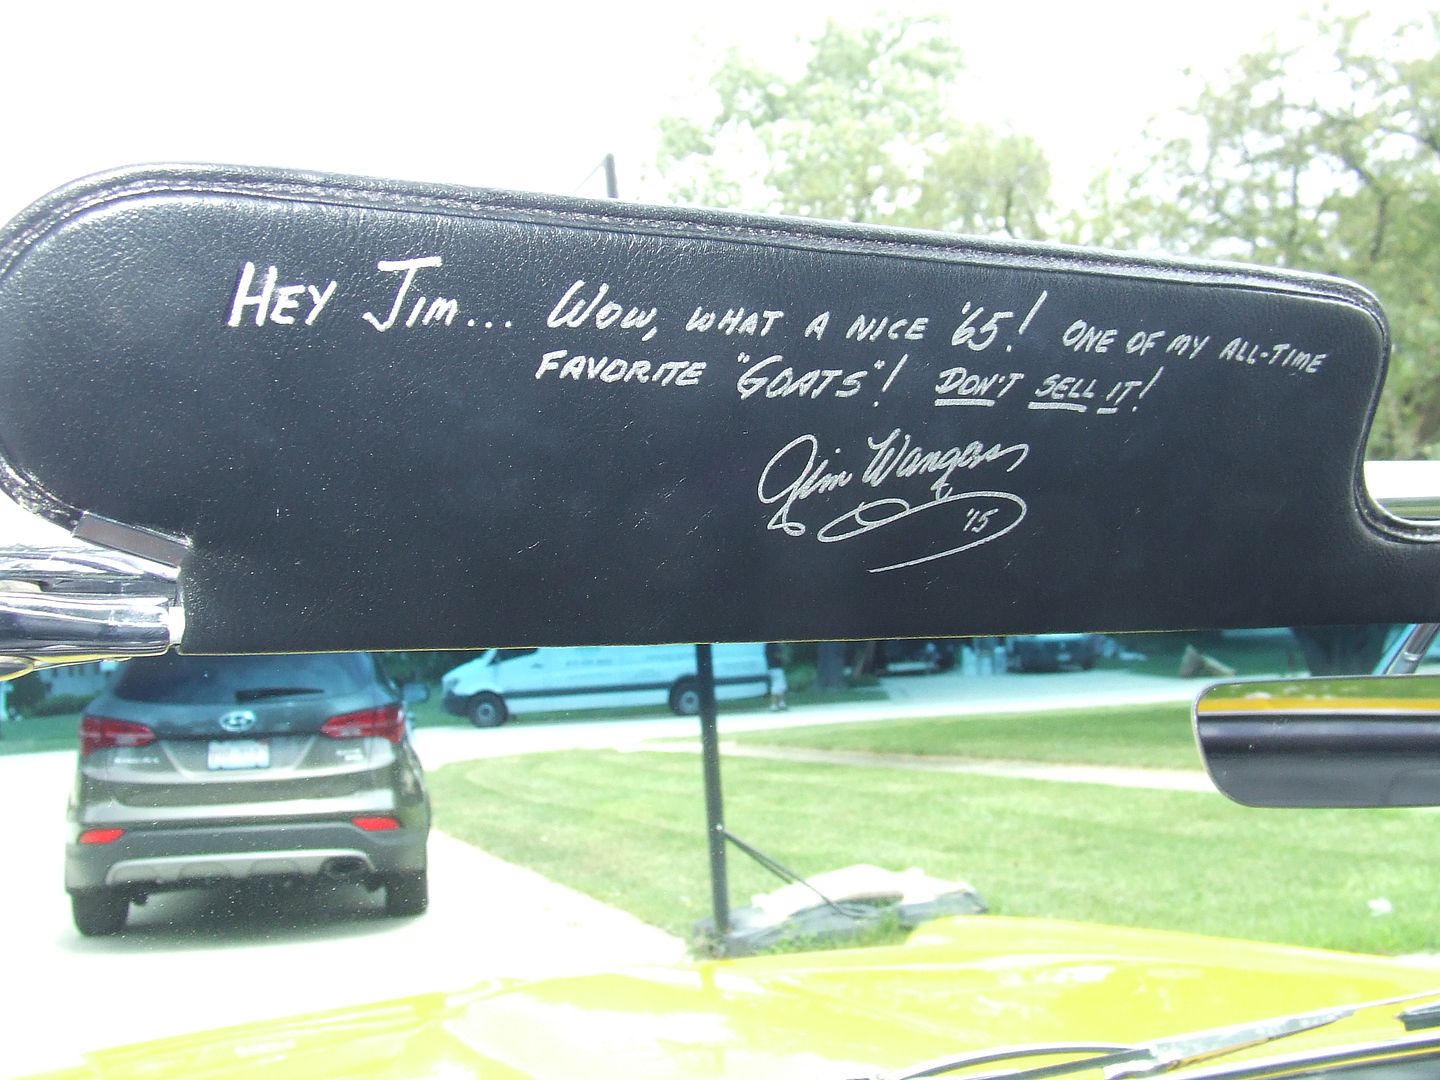 HEY JIM... WOW, WHAT A NICE '65! ONE OF MY ALL-TIME
FAVORITE "GOATS"! DON'T SELL IT!
Jim Wangers
'15